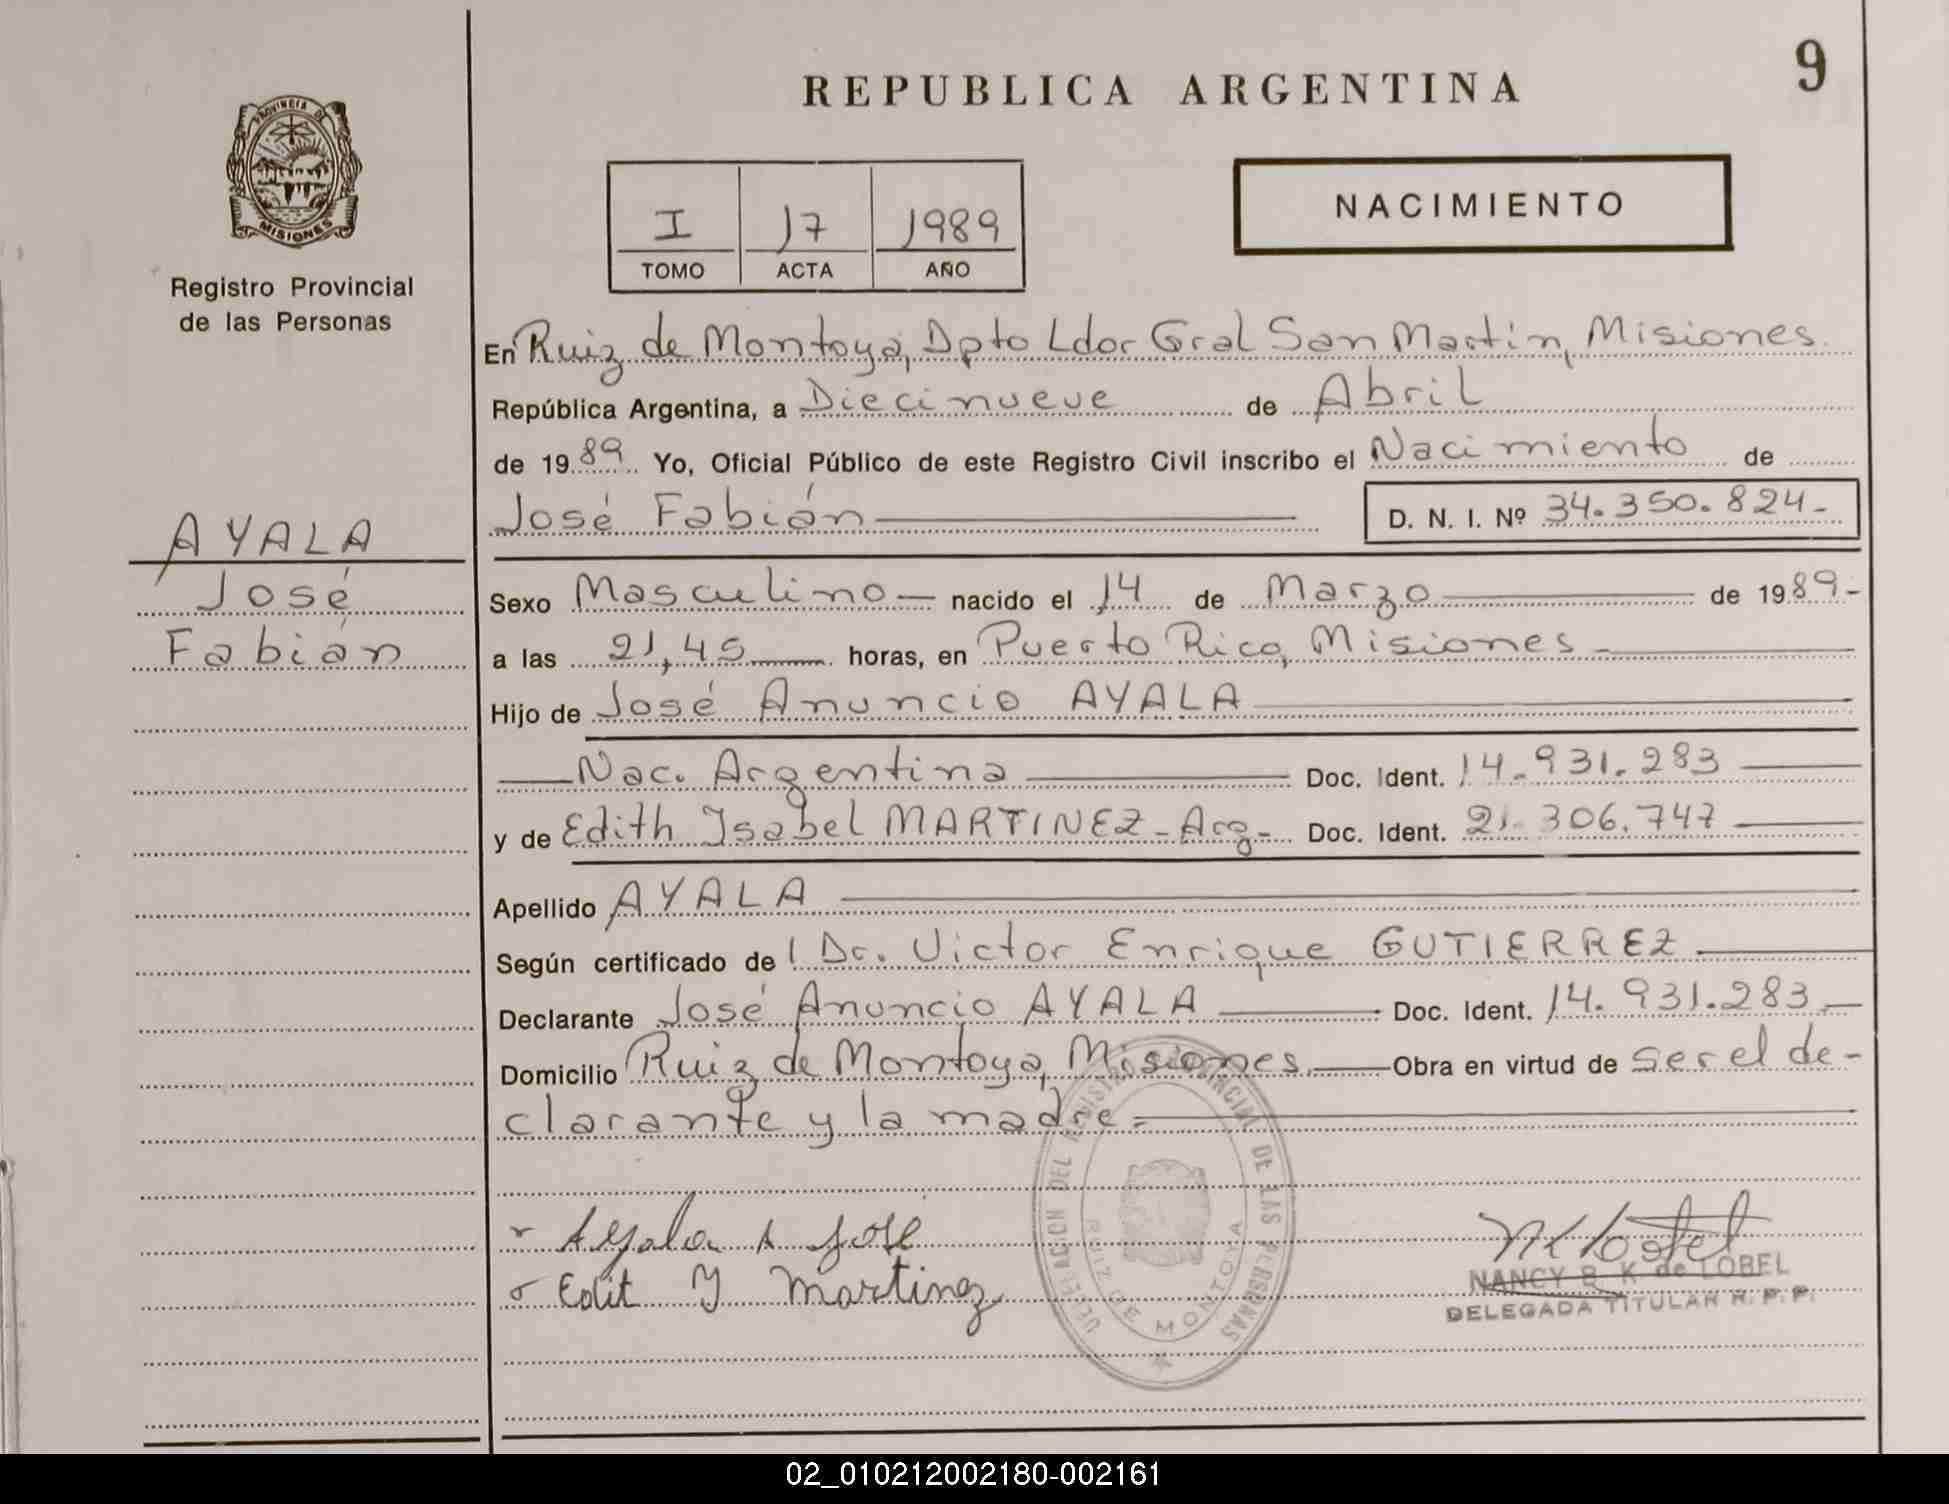 REPUBLICA ARGENTINA
9
PROVINCIA DE
MISIONES
Registro Provincial
de las Personas
I 17 1989
TOMO ACTA AÑO
NACIMIENTO
En Ruiz de Montoya, Dpto Ldor Gral San Martín, Misiones.
República Argentina, a Diecinueve de Abril
de 1989 Yo, Oficial Público de este Registro Civil inscribo el Nacimiento de
José Fabián
D. N. I. Nº 34.350.824-
AYALA
José
Fabián
Sexo Masculino nacido el 14 de Marzo de 1989-
a las 21,45 horas, en Puerto Rico, Misiones
Hijo de José Anuncio AYALA
Nac. Argentina Doc. Ident. 14.931.283
y de Edith Isabel MARTINEZ- Arg- Doc. Ident. 21.306.747
Apellido AYALA
Según certificado de l Dr. Victor Enrique GUTIERREZ
Declarante José Anuncio AYALA Doc. Ident. 14.931.283
Domicilio Ruiz de Montoya, Misiones. Obra en virtud de ser el de-
clarante y la madre=
Ayala A José
Edit Y Martinez
DELEGACION DEL REGISTRO PROVINCIAL DE LAS PERSONAS
RUIZ DE MONTOYA
NANCY B. K de LOBEL
DELEGADA TITULAR R. P. P.
02_010212002180-002161